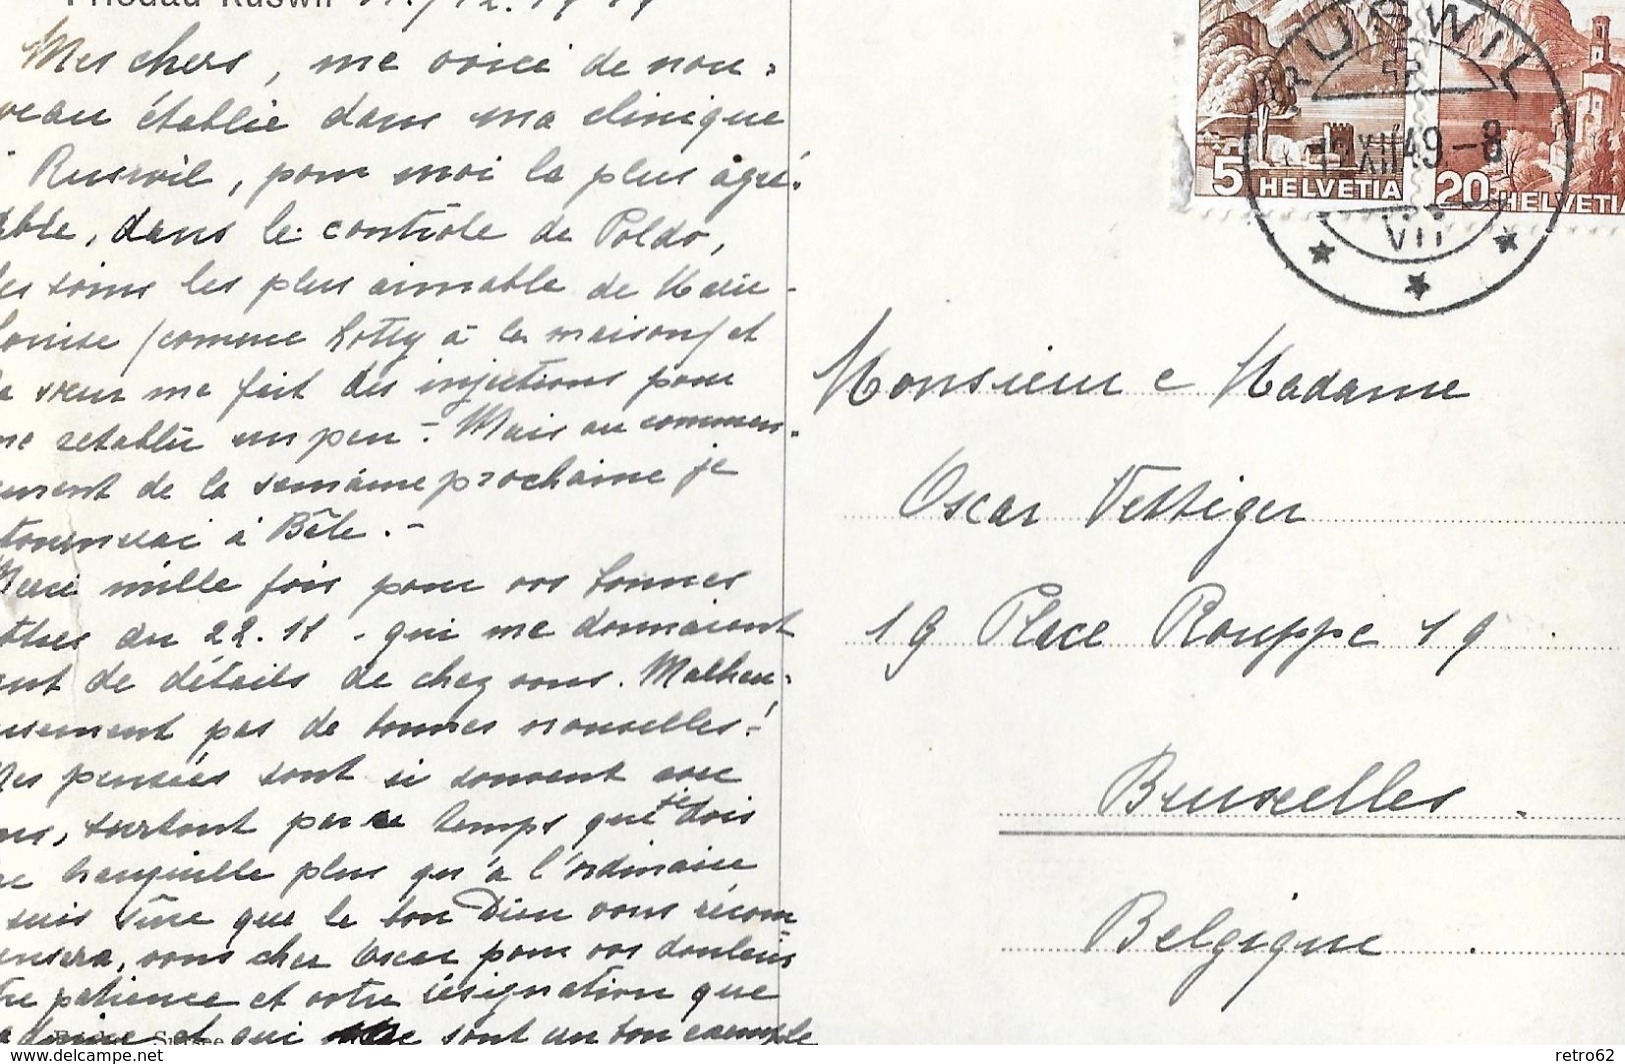 Friedau Ruswil 11./12. 1949
Mes chers, me voici de nou-
veau établie dans ma clinique
Ruswil, pour moi la plus agré-
able, dans le contrôle de Poldo,
les soins les plus aimable de Marie-
Louise (comme Lotty à la maison) et
la sœur me fait des injections pour
me rétablir un peu - Mais au commen-
cement de la semaine prochaine je
retournerai à Bâle. -
Merci mille fois pour vos bonnes
lettres du 22. 11 - qui me donnaient
tant de détails de chez vous. Malheu-
reusement pas de bonnes nouvelles!
Mes pensées sont si souvent avec
vous, surtout par ce temps que je dois
être tranquille plus qu'à l'ordinaire
suis sûre que le bon Dieu vous récom-
pensera, vous cher Oscar pour vos douleurs
votre patience et votre résignation que
et qui sont un bon exemple
Sursee
5 HELVETIA
20 HELVETIA
RUSWIL
XII 49 - 8
VII
Monsieur e Madame
Oscar Vettiger
19 Place Rouppe 19
Bruxelles
Belgique
www.delcampe.net
retro62